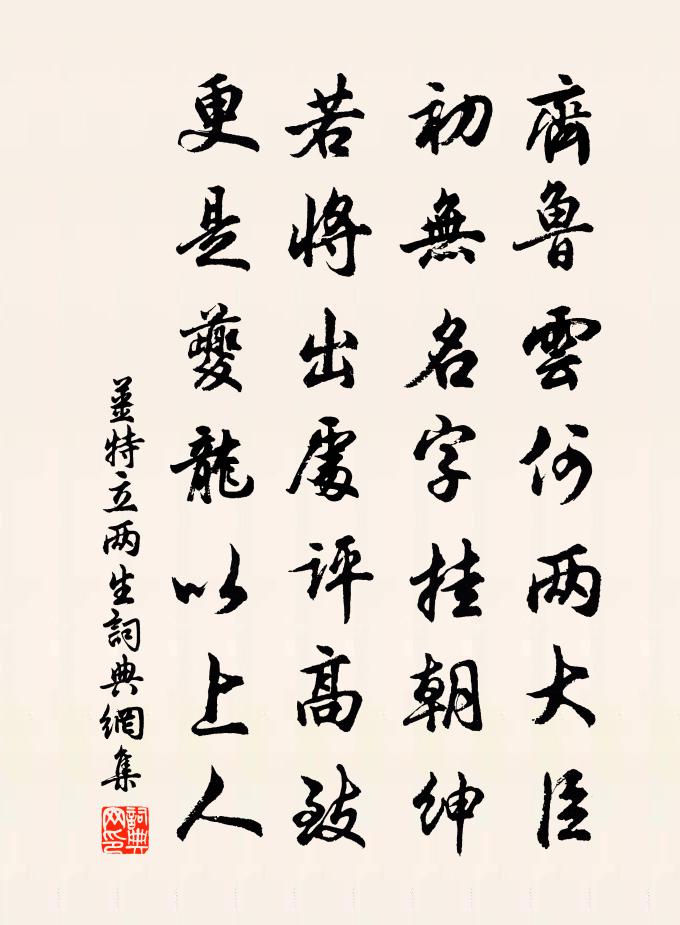 齊魯雲何两大臣
初無名字挂朝紳
若將出處評高致
更是夔龍以上人
姜特立两生詞典網集
詞典网印